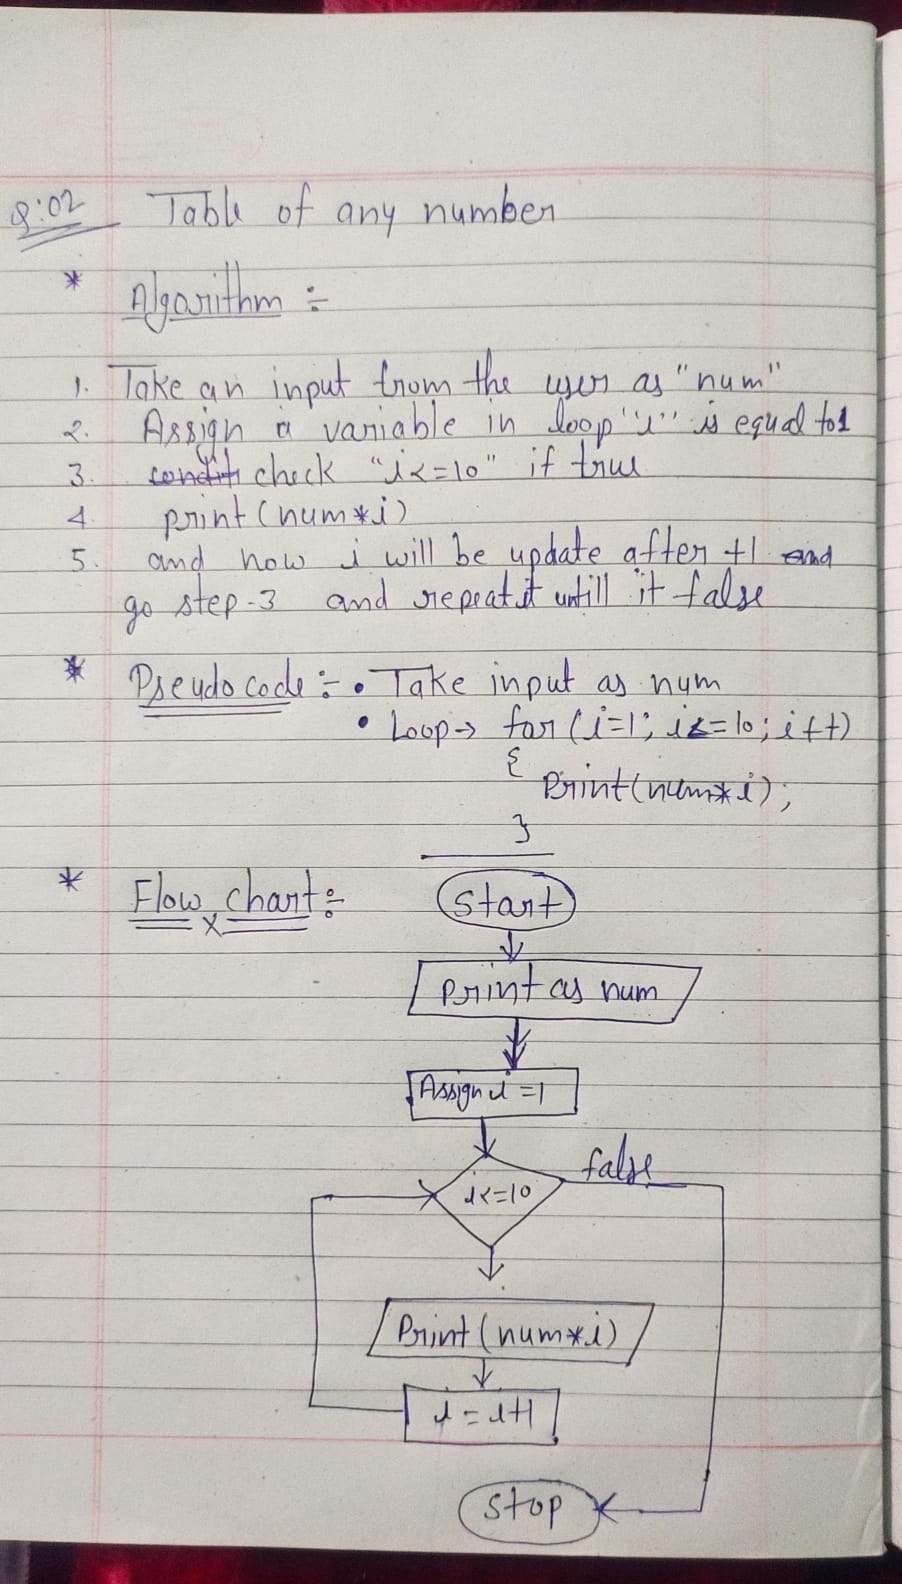 Q:02 Table of any number
* Algorithm :-
1. Take an input from the user as "num"
2. Assign a variable in loop "i" is equal to 1
3. check "i<=10" if true
4. print(num*i)
5. and now i will be update after +1 and
go step-3 and repeat it untill it false
* Pseudo code :- • Take input as num
• Loop→ for (i=1; i<=10; i++)
{
Print(num*i);
}
* Flow chart :-
Start
print as num
Assign i=1
i<=10
false
Print(num*i)
i=i+1
Stop